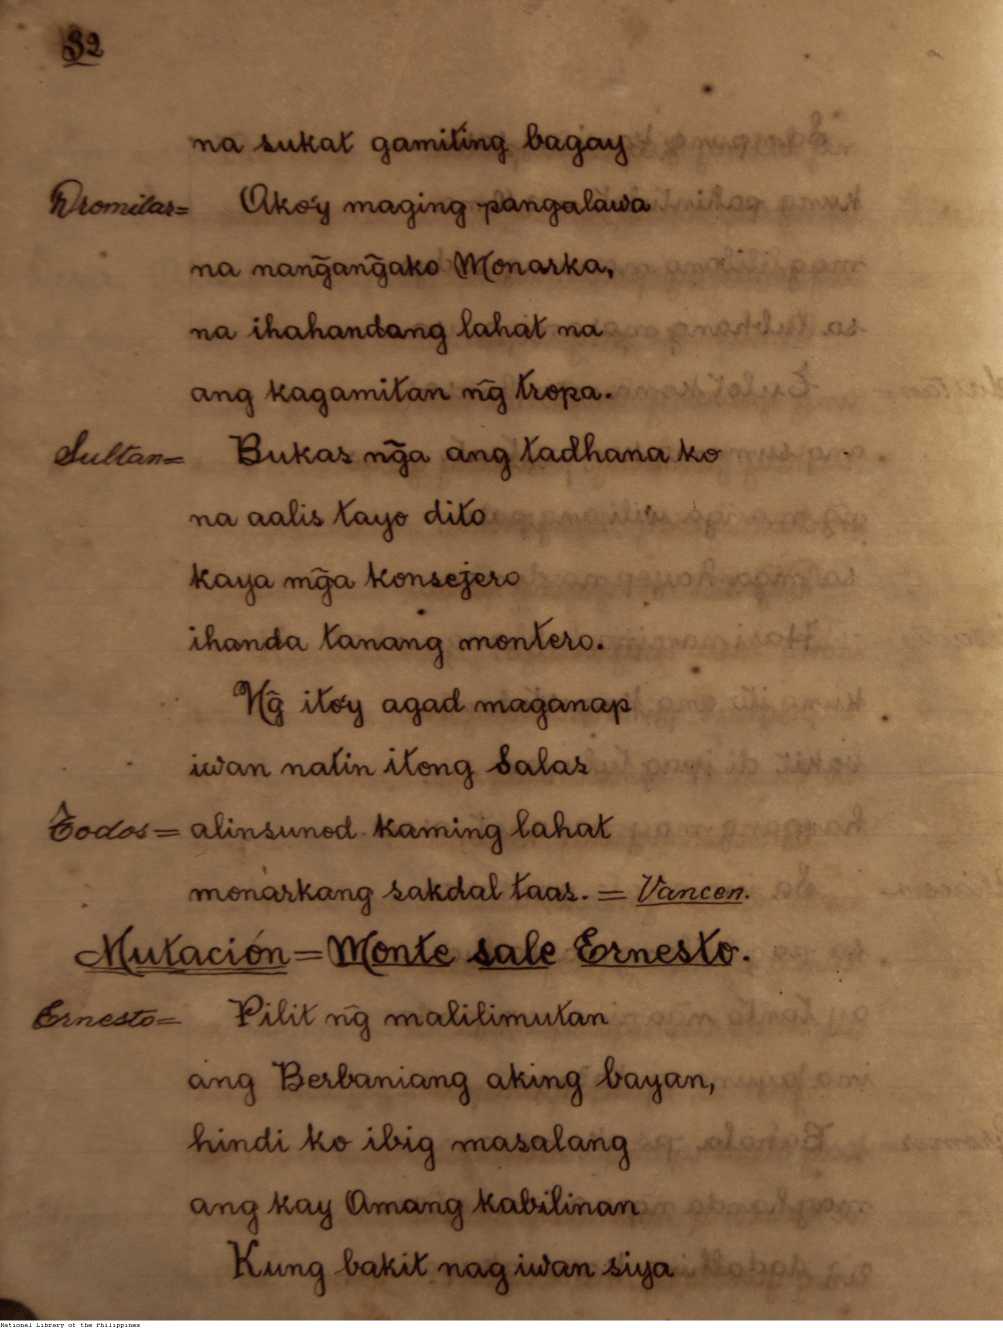 32
na sukat gamiting bagay
Dromilar= Ako'y maging pangalawa
na nang̃ang̃ako Monarka,
na ihahandang lahat na
ang kagamitan ng̃ tropa.
Sultan= Bukas ng̃a ang tadhana ko
na aalis tayo dito
kaya mg̃a konsejero
ihanda tanang montero.
Ng̃ ito'y agad maganap
iwan natin itong Salas
Todos= alinsunod kaming lahat
monarkang sakdal taas. = Vancen.
Mutación = Monte sale Ernesto.
Ernesto= Pilit ng̃ malilimutan
ang Berbaniang aking bayan,
hindi ko ibig masalang
ang kay Amang kabilinan
Kung bakit nag iwan siya
National Library of the Philippines